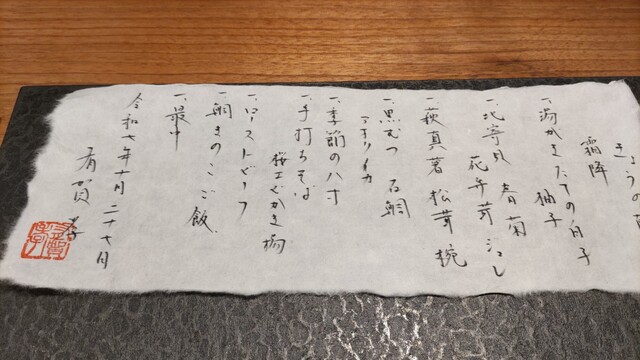 きょうの
霜降
一、湯がきたての白子
柚子
一、北寄貝 春菊
花弁茸 浸し
一、萩真薯 松茸 椀
一、黒むつ 石鯛
アオリイカ
一、季節の八寸
一、手打ちそば
桜エビかき揚
一、ローストビーフ
一、鯛きのこご飯
一、最中
令和七年十月二十七日
有賀